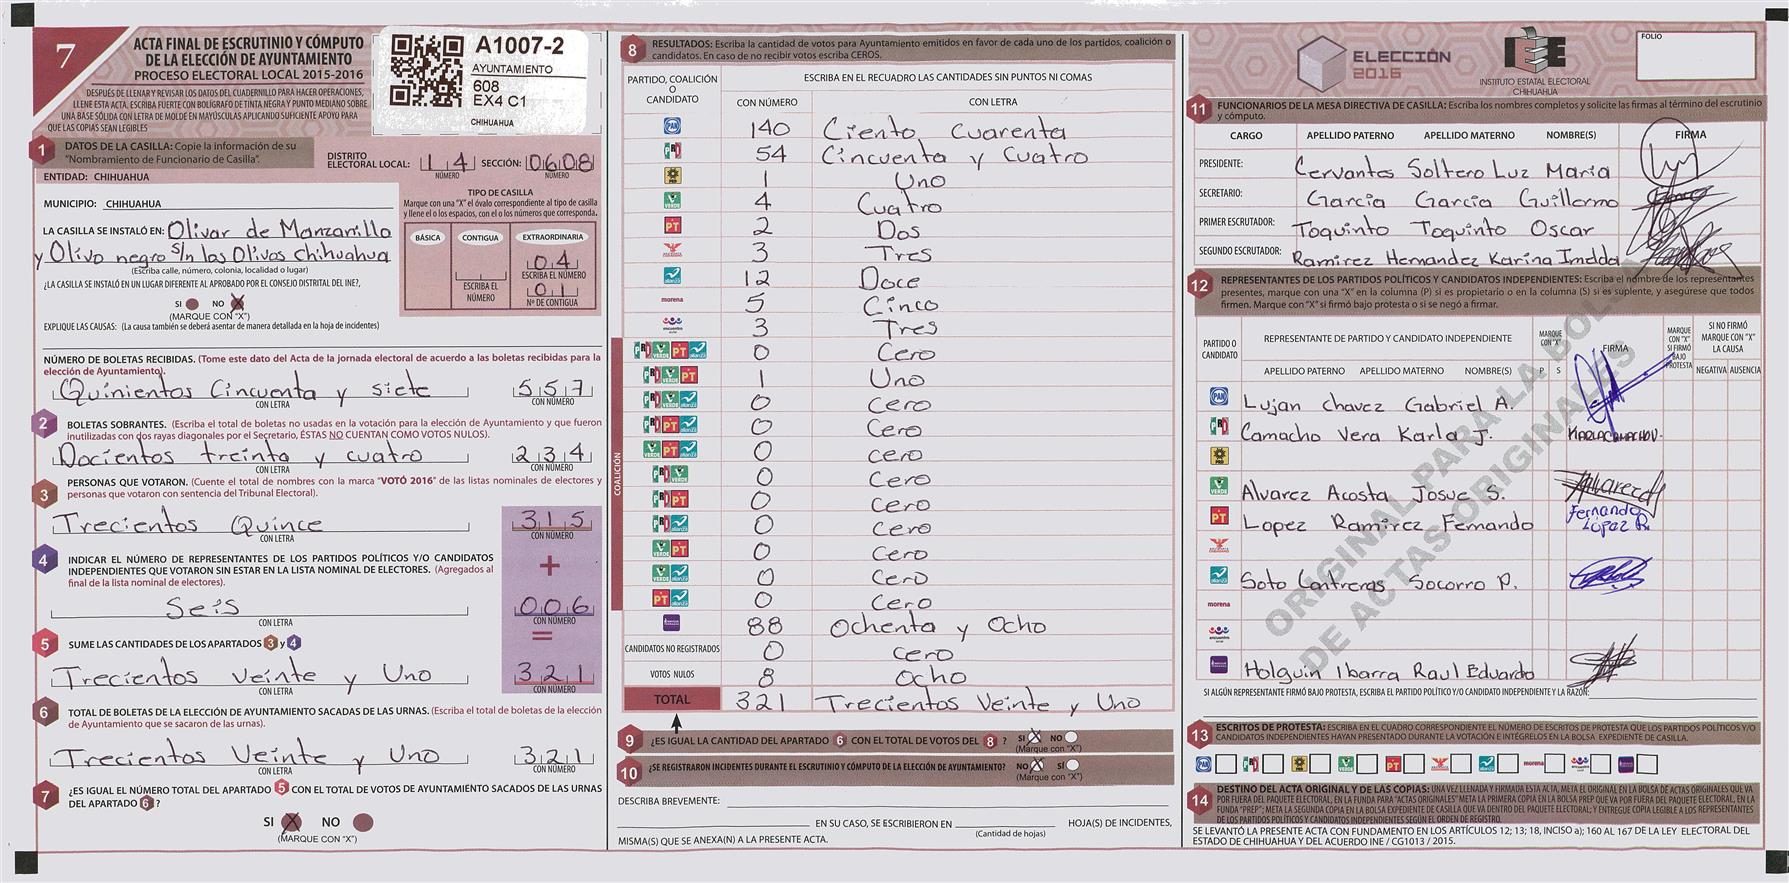 7
ACTA FINAL DE ESCRUTINIO Y CÓMPUTO
DE LA ELECCIÓN DE AYUNTAMIENTO
PROCESO ELECTORAL LOCAL 2015-2016
DESPUÉS DE LLENAR Y REVISAR LOS DATOS DEL CUADERNILLO PARA HACER OPERACIONES,
LLENE ESTA ACTA. ESCRIBA FUERTE CON BOLÍGRAFO DE TINTA NEGRA Y PUNTO MEDIANO SOBRE
UNA BASE SÓLIDA CON LETRA DE MOLDE EN MAYÚSCULAS APLICANDO SUFICIENTE APOYO PARA
QUE LAS COPIAS SEAN LEGIBLES
A1007-2
AYUNTAMIENTO
608
EX4 C1
CHIHUAHUA
1 DATOS DE LA CASILLA: Copie la información de su
"Nombramiento de Funcionario de Casilla".
DISTRITO
ELECTORAL LOCAL: 14 SECCIÓN: 0608
NÚMERO NÚMERO
ENTIDAD: CHIHUAHUA
MUNICIPIO: CHIHUAHUA
LA CASILLA SE INSTALÓ EN: Olivar de Manzanillo
y Olivo negro s/n las Olivos chihuahua
(Escriba calle, número, colonia, localidad o lugar)
¿LA CASILLA SE INSTALÓ EN UN LUGAR DIFERENTE AL APROBADO POR EL CONSEJO DISTRITAL DEL INE?,
SI NO X
(MARQUE CON "X")
EXPLIQUE LAS CAUSAS: (La causa también se deberá asentar de manera detallada en la hoja de incidentes)
TIPO DE CASILLA
Marque con una "X" el óvalo correspondiente al tipo de casilla
y llene el o los espacios, con el o los números que corresponda.
BÁSICA CONTIGUA EXTRAORDINARIA
04
ESCRIBA EL NÚMERO
ESCRIBA EL
NÚMERO
01
Nº DE CONTIGUA
NÚMERO DE BOLETAS RECIBIDAS. (Tome este dato del Acta de la jornada electoral de acuerdo a las boletas recibidas para la
elección de Ayuntamiento).
Quinientos Cincuenta y siete 557
CON LETRA CON NÚMERO
2 BOLETAS SOBRANTES. (Escriba el total de boletas no usadas en la votación para la elección de Ayuntamiento y que fueron
inutilizadas con dos rayas diagonales por el Secretario, ÉSTAS NO CUENTAN COMO VOTOS NULOS).
Docientos treinta y cuatro 234
CON LETRA CON NÚMERO
3 PERSONAS QUE VOTARON. (Cuente el total de nombres con la marca "VOTÓ 2016" de las listas nominales de electores y
personas que votaron con sentencia del Tribunal Electoral).
Trecientos Quince 315
CON LETRA CON NÚMERO
+
4 INDICAR EL NÚMERO DE REPRESENTANTES DE LOS PARTIDOS POLÍTICOS Y/O CANDIDATOS
INDEPENDIENTES QUE VOTARON SIN ESTAR EN LA LISTA NOMINAL DE ELECTORES. (Agregados al
final de la lista nominal de electores).
Seis 006
CON LETRA CON NÚMERO
=
5 SUME LAS CANTIDADES DE LOS APARTADOS 3 y 4
Trecientos Veinte y Uno 321
CON LETRA CON NÚMERO
6 TOTAL DE BOLETAS DE LA ELECCIÓN DE AYUNTAMIENTO SACADAS DE LAS URNAS. (Escriba el total de boletas de la elección
de Ayuntamiento que se sacaron de las urnas).
Trecientos Veinte y Uno 321
CON LETRA CON NÚMERO
7 ¿ES IGUAL EL NÚMERO TOTAL DEL APARTADO 5 CON EL TOTAL DE VOTOS DE AYUNTAMIENTO SACADOS DE LAS URNAS
DEL APARTADO 6 ?
SI X NO
(MARQUE CON "X")
8 RESULTADOS: Escriba la cantidad de votos para Ayuntamiento emitidos en favor de cada uno de los partidos, coalición o
candidatos. En caso de no recibir votos escriba CEROS.
PARTIDO, COALICIÓN
O
CANDIDATO
ESCRIBA EN EL RECUADRO LAS CANTIDADES SIN PUNTOS NI COMAS
CON NÚMERO CON LETRA
PAN 140 Ciento Cuarenta
PRI 54 Cincuenta y Cuatro
PRD 1 Uno
VERDE 4 Cuatro
PT 2 Dos
3 Tres
alianza 12 Doce
morena 5 Cinco
encuentro social 3 Tres
COALICIÓN
PRI VERDE PT alianza 0 Cero
PRI VERDE PT 1 Uno
PRI VERDE alianza 0 Cero
PRI PT alianza 0 Cero
VERDE PT alianza 0 cero
PRI VERDE 0 Cero
PRI PT 0 Cero
PRI alianza 0 Cero
VERDE PT 0 Cero
VERDE alianza 0 Cero
PT alianza 0 Cero
88 Ochenta y Ocho
CANDIDATOS NO REGISTRADOS 0 cero
VOTOS NULOS 8 Ocho
TOTAL 321 Trecientos Veinte y Uno
9 ¿ES IGUAL LA CANTIDAD DEL APARTADO 6 CON EL TOTAL DE VOTOS DEL 8 ? SI X NO
(Marque con "X")
10 ¿SE REGISTRARON INCIDENTES DURANTE EL ESCRUTINIO Y CÓMPUTO DE LA ELECCIÓN DE AYUNTAMIENTO? NO X SÍ
(Marque con "X")
DESCRIBA BREVEMENTE:
EN SU CASO, SE ESCRIBIERON EN HOJA(S) DE INCIDENTES,
(Cantidad de hojas)
MISMA(S) QUE SE ANEXA(N) A LA PRESENTE ACTA.
ELECCIÓN
2016
IEE
INSTITUTO ESTATAL ELECTORAL
CHIHUAHUA
FOLIO
11 FUNCIONARIOS DE LA MESA DIRECTIVA DE CASILLA: Escriba los nombres completos y solicite las firmas al término del escrutinio
y cómputo.
CARGO APELLIDO PATERNO APELLIDO MATERNO NOMBRE(S) FIRMA
PRESIDENTE: Cervantes Soltero Luz Maria
SECRETARIO: Garcia Garcia Guillermo
PRIMER ESCRUTADOR: Toquinto Toquinto Oscar
SEGUNDO ESCRUTADOR: Ramirez Hernandez Karina Imelda
12 REPRESENTANTES DE LOS PARTIDOS POLÍTICOS Y CANDIDATOS INDEPENDIENTES: Escriba el nombre de los representantes
presentes, marque con una "X" en la columna (P) si es propietario o en la columna (S) si es suplente, y asegúrese que todos
firmen. Marque con "X" si firmó bajo protesta o si se negó a firmar.
PARTIDO O
CANDIDATO
REPRESENTANTE DE PARTIDO Y CANDIDATO INDEPENDIENTE
MARQUE
CON "X"
FIRMA
MARQUE
CON "X"
SI FIRMÓ
BAJO
PROTESTA
SI NO FIRMÓ
MARQUE CON "X"
LA CAUSA
APELLIDO PATERNO APELLIDO MATERNO NOMBRE(S) P S NEGATIVA AUSENCIA
PAN Lujan Chavez Gabriel A.
PRI Camacho Vera Karla J. KARLACAMACHOV.
PRD
VERDE Alvarez Acosta Josue S. Alvarez
PT Lopez Ramirez Fernando Fernando
Lopez R.
alianza Soto Contreras Socorro P.
morena
encuentro social
Holguin Ibarra Raul Eduardo
ORIGINAL PARA LA BOLSA
DE ACTAS ORIGINALES
SI ALGÚN REPRESENTANTE FIRMÓ BAJO PROTESTA, ESCRIBA EL PARTIDO POLÍTICO Y/O CANDIDATO INDEPENDIENTE Y LA RAZÓN:
13 ESCRITOS DE PROTESTA: ESCRIBA EN EL CUADRO CORRESPONDIENTE EL NÚMERO DE ESCRITOS DE PROTESTA QUE LOS PARTIDOS POLÍTICOS Y/O
CANDIDATOS INDEPENDIENTES HAYAN PRESENTADO DURANTE LA VOTACIÓN E INTÉGRELOS EN LA BOLSA EXPEDIENTE DE CASILLA.
PAN PRI PRD VERDE PT alianza morena
14 DESTINO DEL ACTA ORIGINAL Y DE LAS COPIAS: UNA VEZ LLENADA Y FIRMADA ESTA ACTA, META EL ORIGINAL EN LA BOLSA DE ACTAS ORIGINALES QUE VA
POR FUERA DEL PAQUETE ELECTORAL, EN LA FUNDA PARA "ACTAS ORIGINALES" META LA PRIMERA COPIA EN LA BOLSA PREP QUE VA POR FUERA DEL PAQUETE ELECTORAL, EN LA
FUNDA "PREP"; META LA SEGUNDA COPIA EN LA BOLSA EXPEDIENTE DE CASILLA QUE VA DENTRO DEL PAQUETE ELECTORAL; Y ENTREGUE COPIA LEGIBLE A LOS REPRESENTANTES
DE PARTIDOS POLÍTICOS Y CANDIDATOS INDEPENDIENTES SEGÚN EL ORDEN DE REGISTRO.
SE LEVANTÓ LA PRESENTE ACTA CON FUNDAMENTO EN LOS ARTÍCULOS 12; 13; 18, INCISO a); 160 AL 167 DE LA LEY ELECTORAL DEL
ESTADO DE CHIHUAHUA Y DEL ACUERDO INE / CG1013 / 2015.